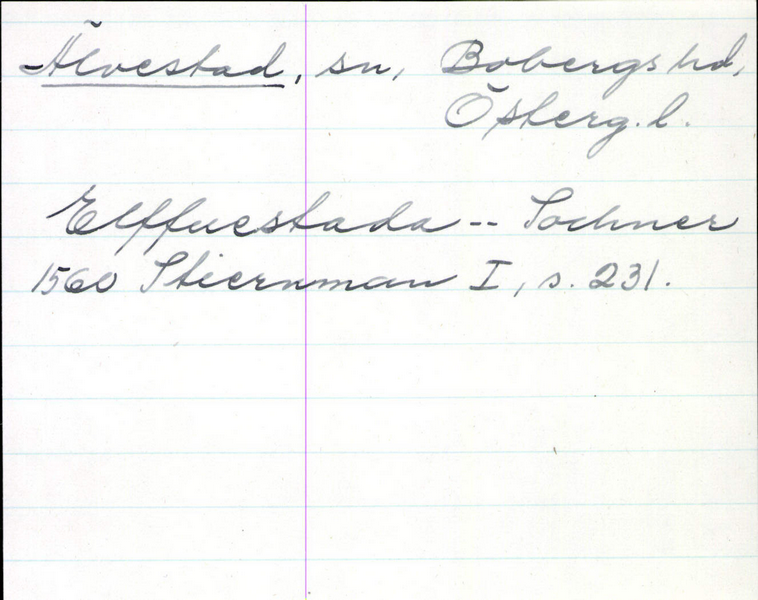 Älvestad, sn, Bobergs hd,
Österg. l.
Elffuestada -- Sochner
1560 Stiernman I, s. 231.